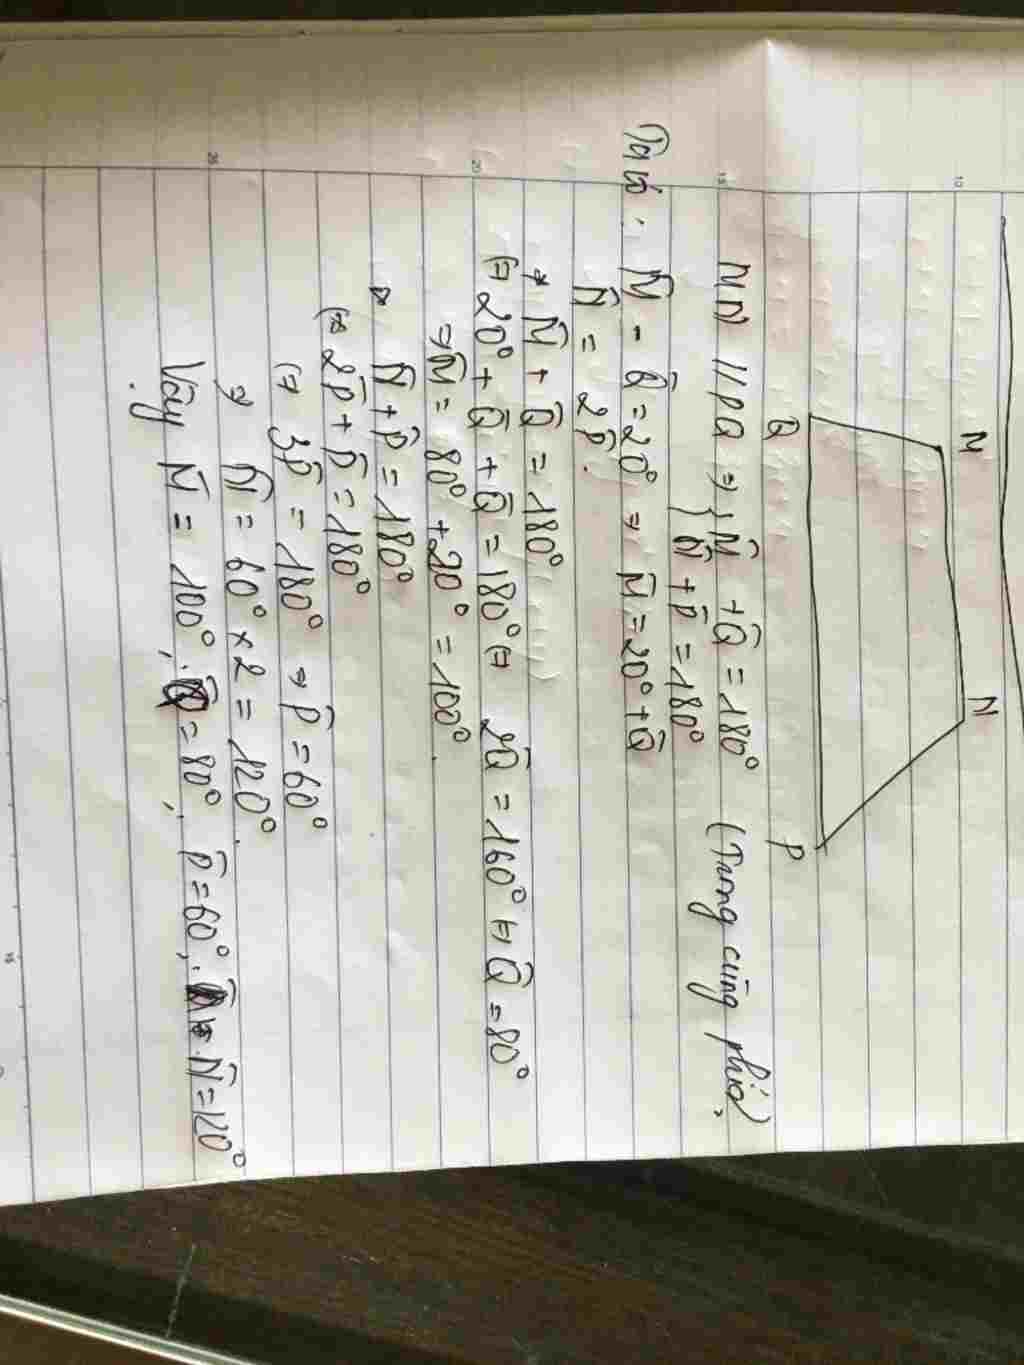 M N
Q P
MN // PQ => { M̂ + Q̂ = 180° (Trong cùng phía)
N̂ + P̂ = 180°
Ta có : M̂ - Q̂ = 20° => M̂ = 20° + Q̂
N̂ = 2P̂.
* M̂ + Q̂ = 180°
(=) 20° + Q̂ + Q̂ = 180° (=) 2Q̂ = 160° (=) Q̂ = 80°
=> M̂ = 80° + 20° = 100°.
* N̂ + P̂ = 180°
(=) 2P̂ + P̂ = 180°
(=) 3P̂ = 180° => P̂ = 60°
=> N̂ = 60° × 2 = 120°.
Vậy M̂ = 100°, Q̂ = 80°, P̂ = 60°, N̂ = 120°